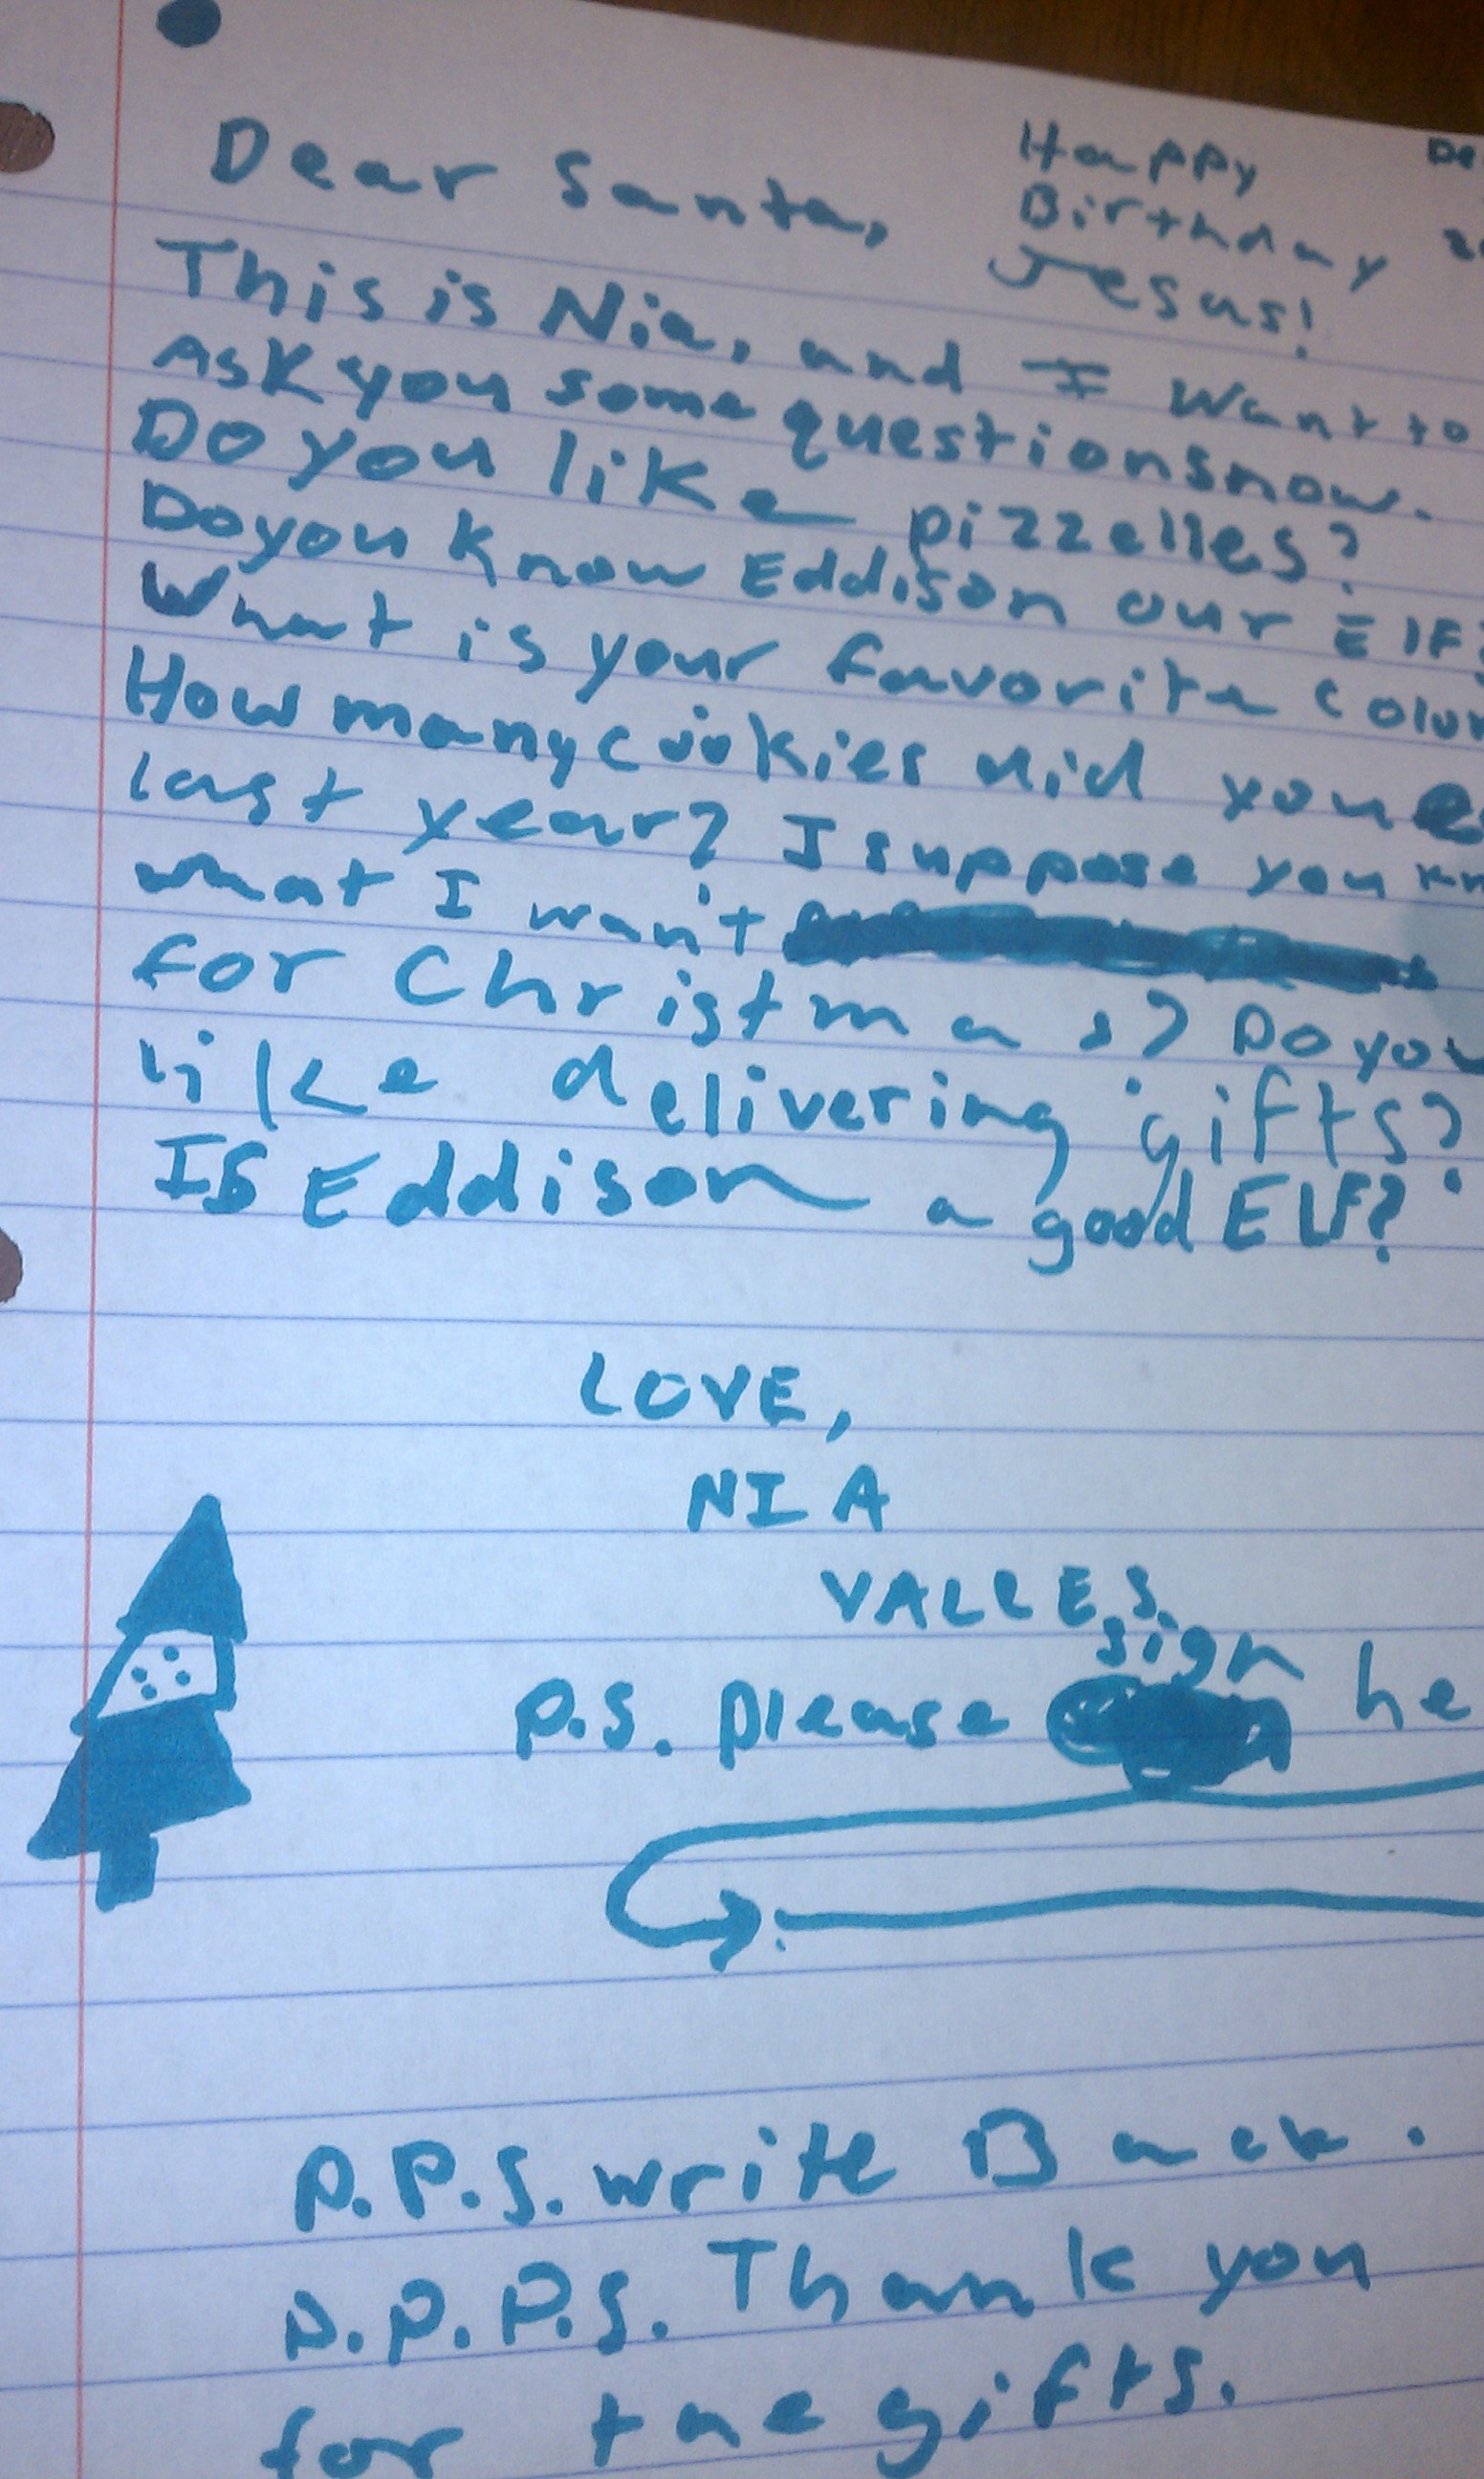 Dear Santa,
Happy
Birthday
Jesus!
De
This is Nia, and I want to
Ask you some questionsnow.
Do you like pizzelles?
Doyou know Eddison our ElF?
What is your favorite colou
How manycookies did you e
last year? I suppose you kn
what I wan't
for Christmas? Do you
like delivering gifts?
IS Eddison a good ELF?
LOVE,
NIA
VALLES.
sign
P.S. please he
P.P.S. write Back.
P.P.P.S. Thank you
for the gifts.